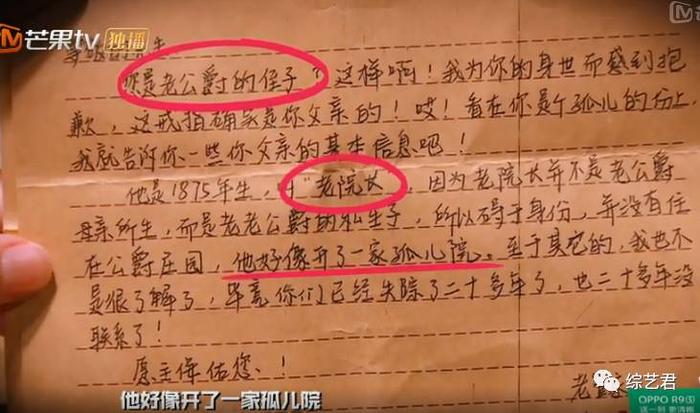 芒果tv 独播
综艺
您是老公爵的侄子?这样啊!我为你的身世而感到抱
歉,这戒指确实是你父亲的!哎!看在你是个孤儿的份上
我就告诉你一些你父亲的基本信息吧!
他是1875年生,叫"老院长",因为老院长并不是老公爵
母亲所生,而是老老公爵的私生子,所以碍于身份,并没有住
在公爵庄园,他好像开了一家孤儿院。至于其它的,我也不
是很了解了,毕竟你们已经失踪了二十多年了,也二十多年没
联系了!
愿主保佑您!
老
他好像开了一家孤儿院
综艺君
OPPO R9s